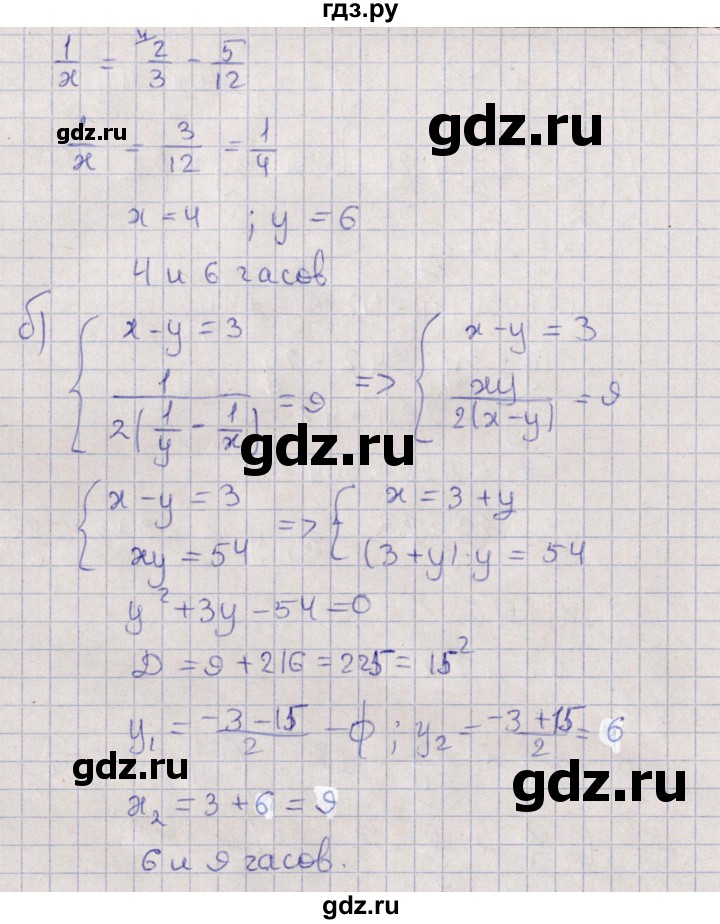 гдз.ру
1/x = 2/3 - 5/12
4
gdz.ru
1/x = 3/12 = 1/4
gdz.ru
x = 4 ; y = 6
4 и 6 часов
б) { x - y = 3 => { x - y = 3
1/(2(1/y - 1/x)) = 9 xy/(2(x-y)) = 9
gdz.ru
{ x - y = 3 => { x = 3 + y
xy = 54 (3+y)·y = 54
y² + 3y - 54 = 0
Д = 9 + 216 = 225 = 15²
y₁ = (-3-15)/2 - ф ; y₂ = (-3+15)/2 = 6
gdz.ru
gdz.ru
x₂ = 3 + 6 = 9
6 и 9 часов.
gdz.ru